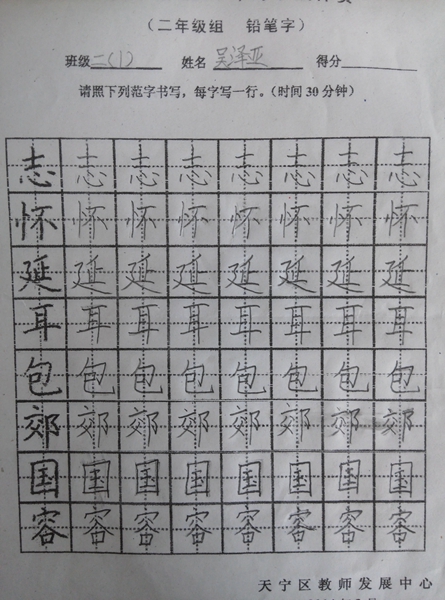 （二年级组 铅笔字）
班级 二（1） 姓名 吴泽亚 得分
请照下列范字书写，每字写一行。（时间30分钟）
志 志 志 志 志 志 志 志
怀 怀 怀 怀 怀 怀 怀 怀
延 延 延 延 延 延 延 延
耳 耳 耳 耳 耳 耳 耳 耳
包 包 包 包 包 包 包 包
郊 郊 郊 郊 郊 郊 郊 郊
国 国 国 国 国 国 国 国
容 容 容 容 容 容 容 容
天宁区教师发展中心